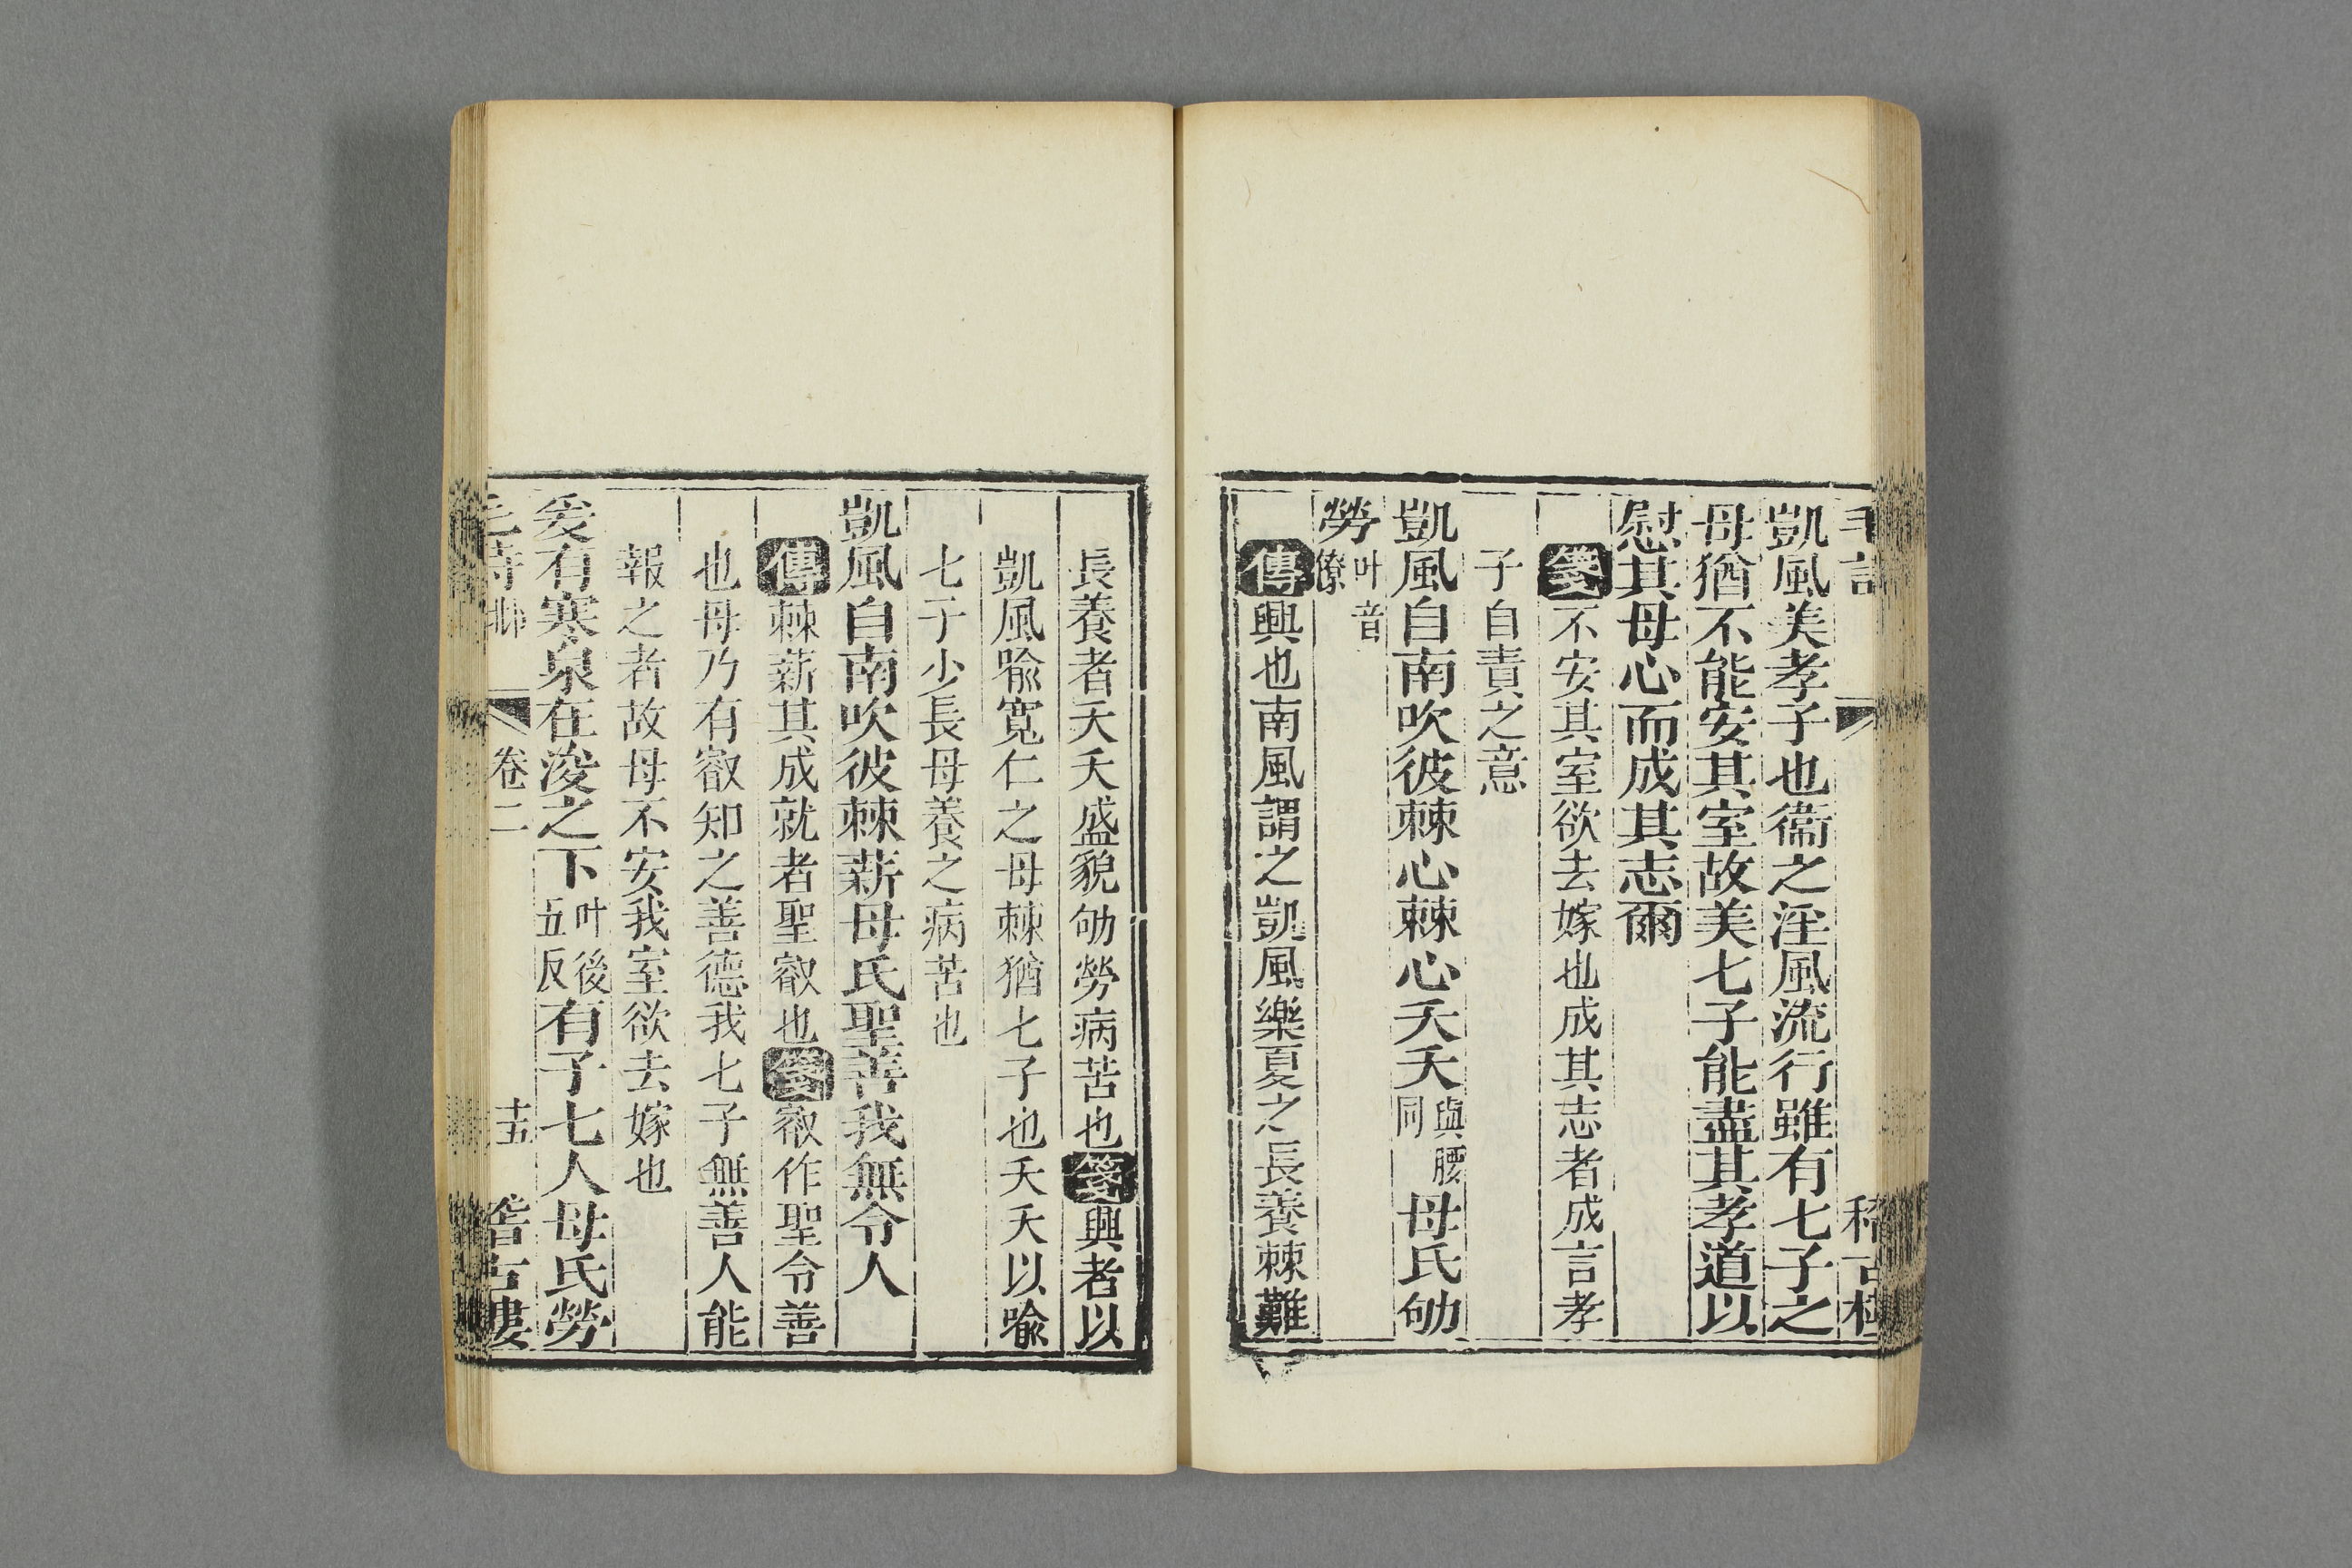 凱風美孝子也衞之淫風流行雖有七子之
母猶不能安其室故美七子能盡其孝道以
慰其母心而成其志爾
箋不安其室欲去嫁也成其志者成言孝
子自責之意
凱風自南吹彼棘心棘心夭夭與腰同母氏劬
勞叶音僚
傳興也南風謂之凱風樂夏之長養棘難
長養者夭夭盛貌劬勞病苦也箋興者以
凱風喻寬仁之母棘猶七子也夭夭以喻
七子少長母養之病苦也
凱風自南吹彼棘薪母氏聖善我無令人
傳棘薪其成就者聖叡也箋叡作聖令善
也母乃有叡知之善德我七子無善人能
報之者故母不安我室欲去嫁也
爰有寒泉在浚之下叶後五反有子七人母氏勞
毛詩邶 卷二 十五 稽古樓